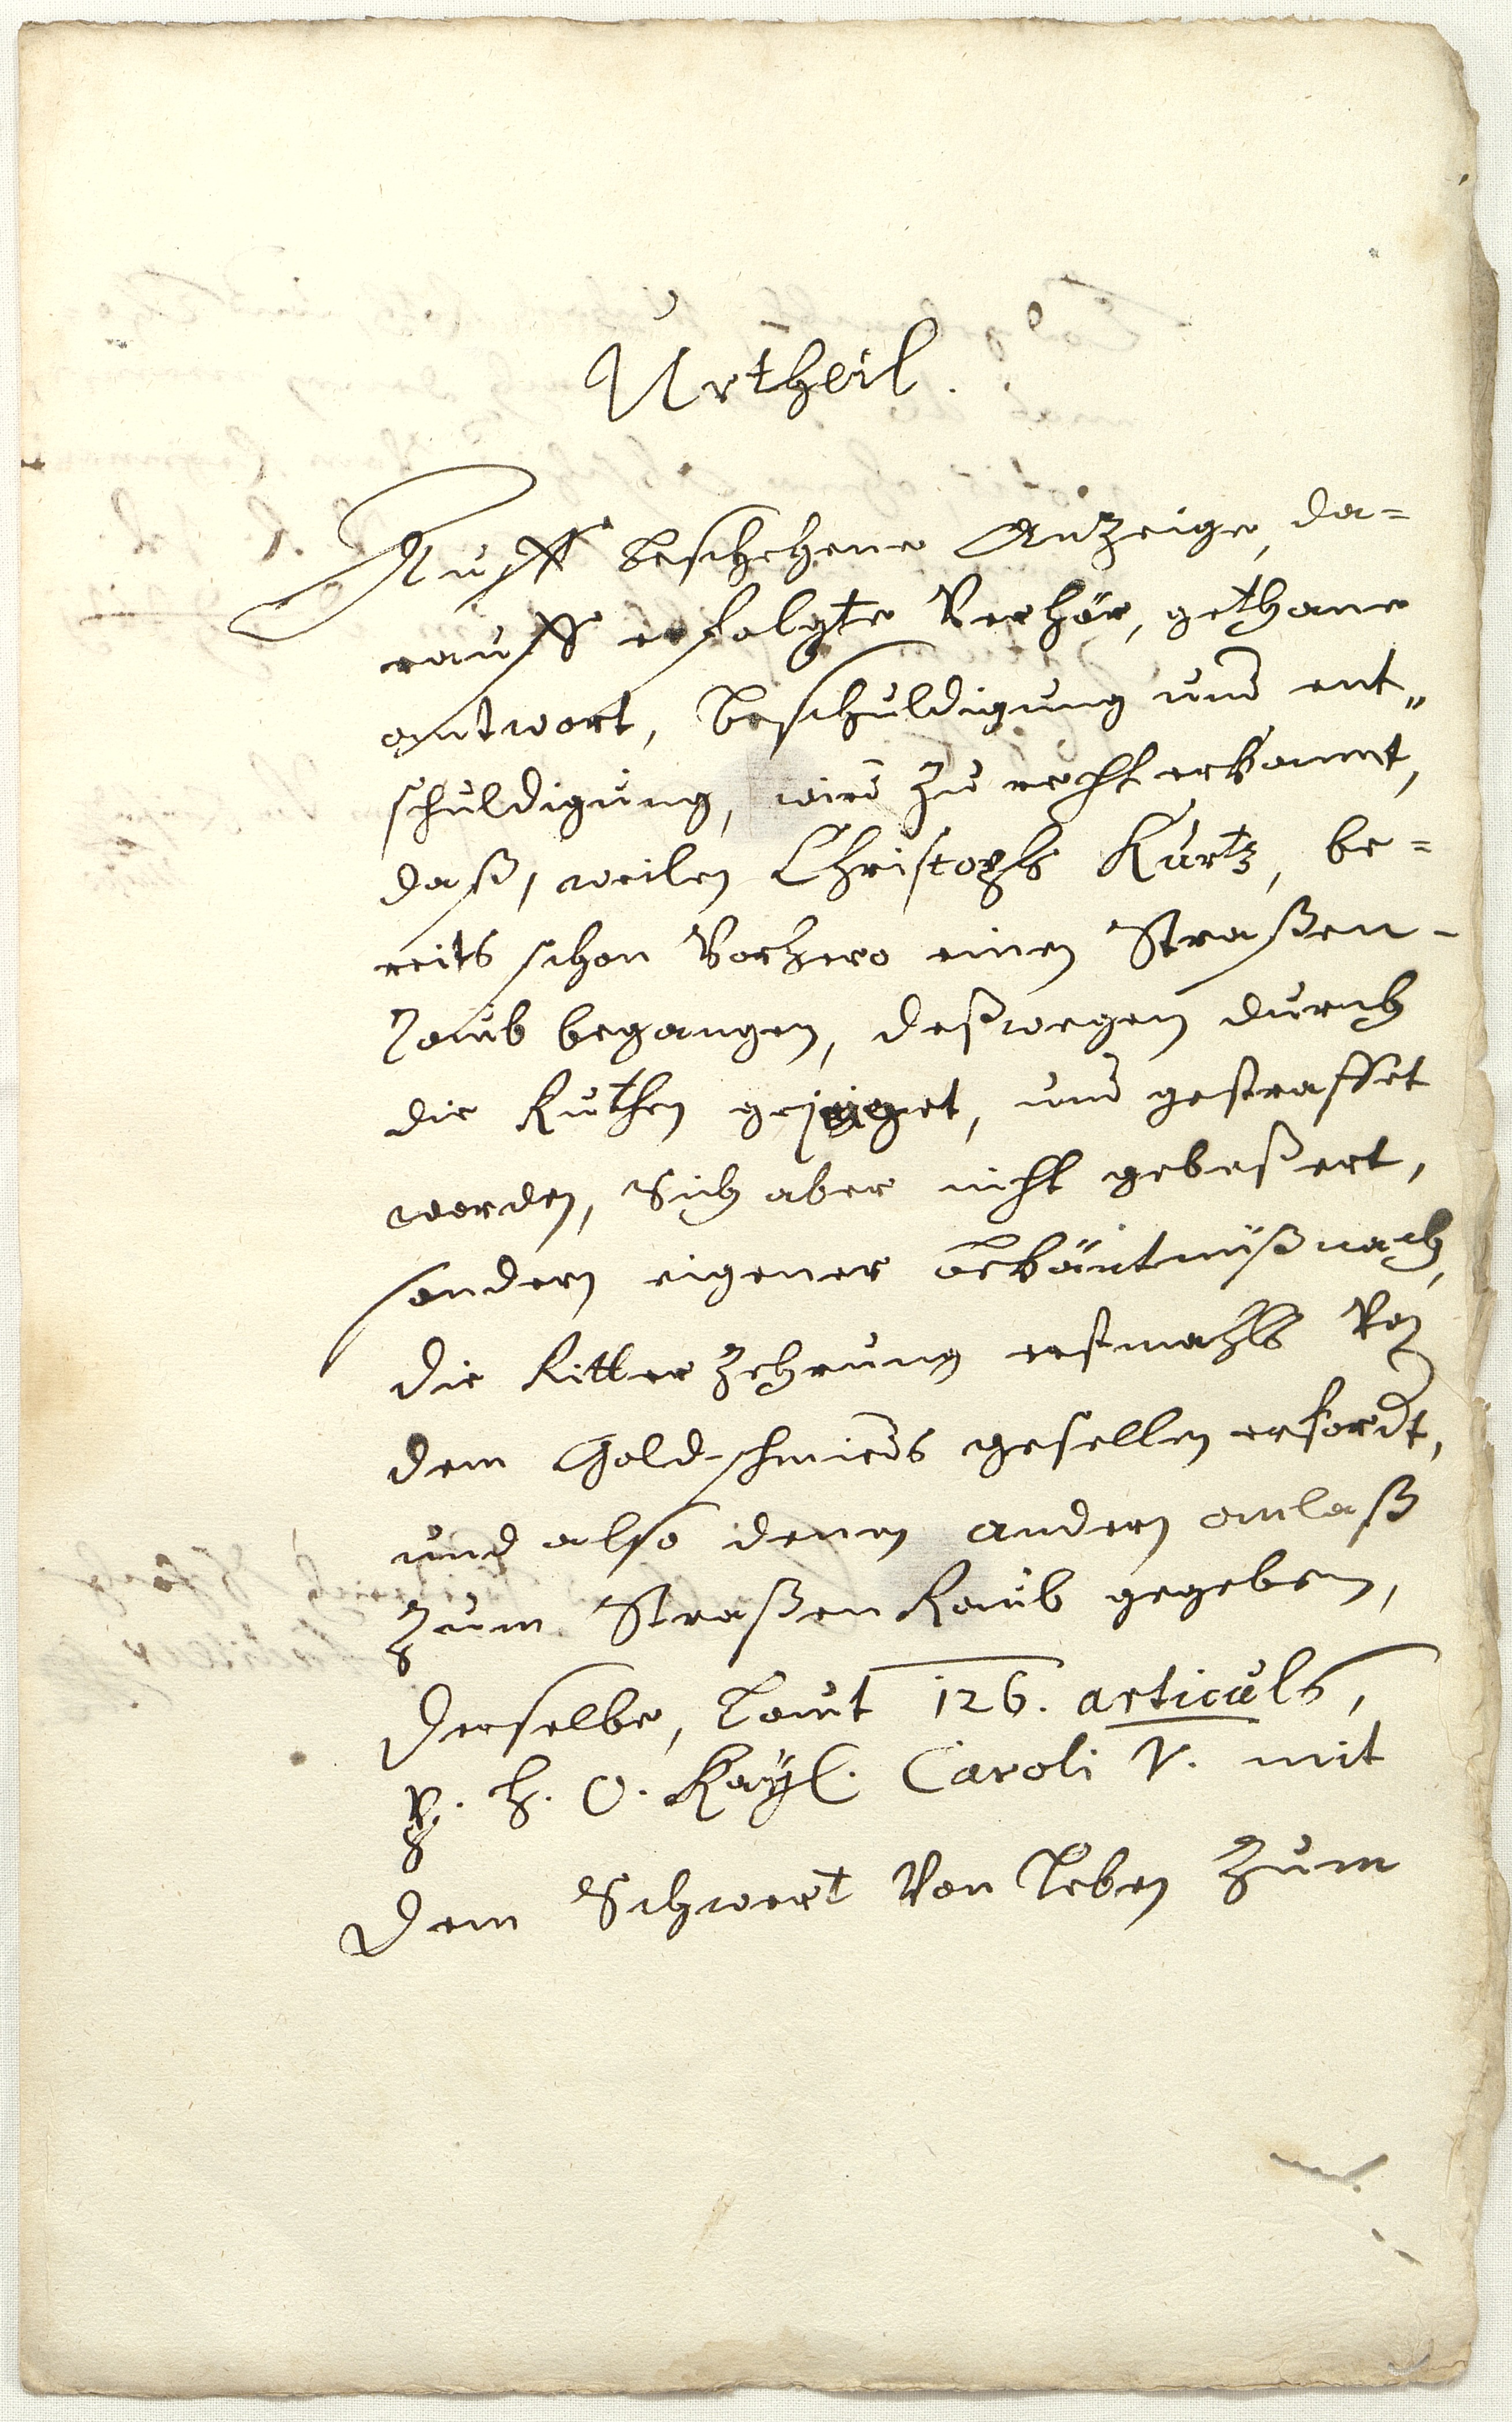 Urtheil.
Auff beschehene Anzeige, da=
rauff erfolgte Verhör, gethane
antwort, Beschuldigung und ent„
schuldigung, wird zu recht erkannt,
daß, weilen Christoph Kurtz, be=
reits schon Vorhero einen Straßen-
Raub begangen, deßwegen durch
die Ruthen gejaget, und gestraffet
worden, Sich aber nicht gebeßert,
sondern eigener bekäntnüß nach,
die Ritter Zehrung erstmahls Von
dem Gold-schmieds gesellen erfordt,
und also denen andern anlaß
zum StraßenRaub gegeben,
Derselbe, Laut 126. articuls,
P. H. O. Kayl. Caroli V. mit
dem Schwert Von Leben Zum